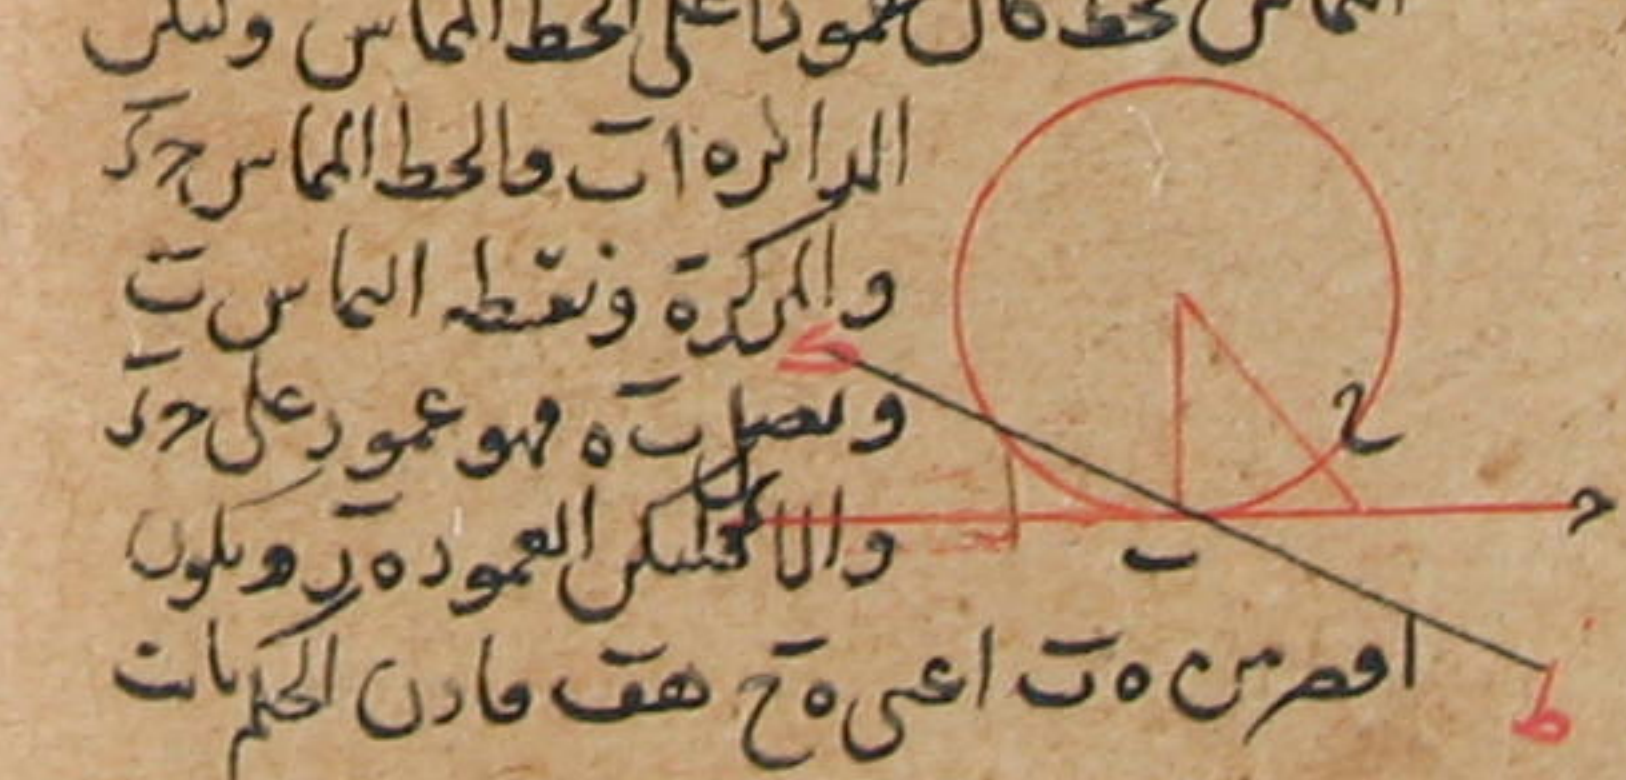 المماس بخط كان عمودا على الخط المماس وليكن
الدائره اب والخط المماس حد
والمركز ه ونقطه التماس ب
ونصل ب ه فهو عمود على حد
والا فليكن العمود ه ر ويكون
اقصر من ه ب اعنى ه ح هف فاذن الحكم ثابت
ح
ب
ح
ط